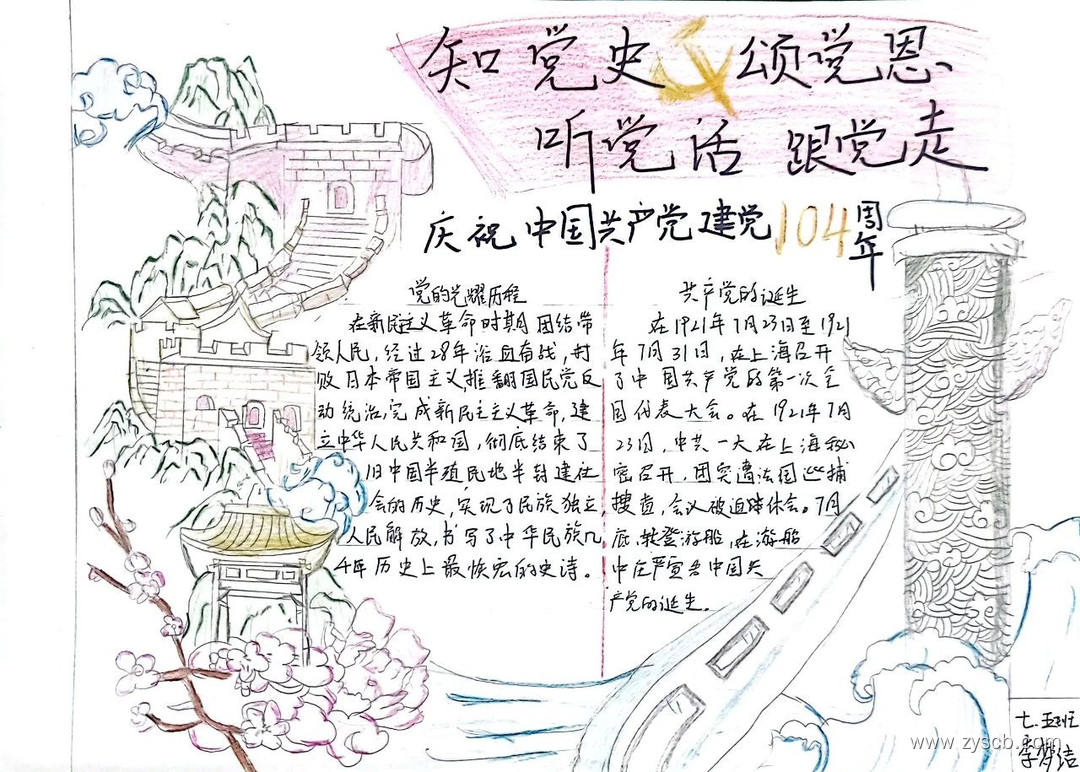 知党史 颂党恩
听党话 跟党走
庆祝中国共产党建党104周年
党的光耀历程
在新民主义革命时期团结带
领人民,经过28年浴血奋战,打
败日本帝国主义,推翻国民党反
动统治,完成新民主主义革命,建
立中华人民共和国,彻底结束了
旧中国半殖民地半封建社
会的历史,实现了民族独立
人民解放,书写了中华民族几
千年历史上最恢宏的史诗。
共产党的诞生
在1921年7月23日至1921
年7月31日,在上海召开
了中国共产党的第一次全
国代表大会。在1921年7月
23日,中共一大在上海秘
密召开,因突遭法国巡捕
搜查,会议被迫休会。7月
底,转登游船,在游船
中庄严宣告中国共
产党的诞生。
七.五班
www.zyscb.com